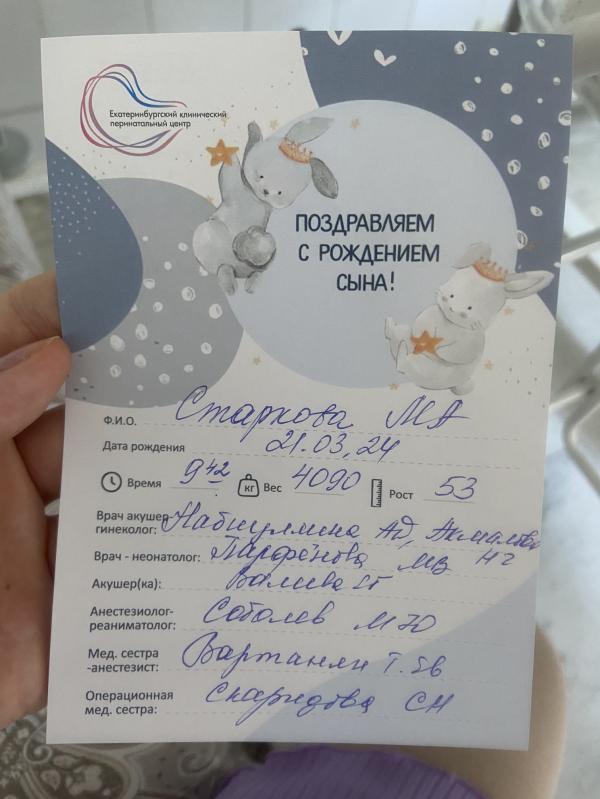 Екатеринбургский клинический
перинатальный центр
ПОЗДРАВЛЯЕМ
С РОЖДЕНИЕМ
СЫНА!
Ф.И.О. Старкова МА
Дата рождения 21.03.24
Время 9 42 кг Вес 4090 Рост 53
Врач акушер-
гинеколог: Набиуллина АД,
Врач - неонатолог: Парфёнова МВ
Акушер(ка):
Анестезиолог-
реаниматолог: Соболев МЮ
Мед. сестра
-анестезист: Вартанян Т.
Операционная
мед. сестра: СН